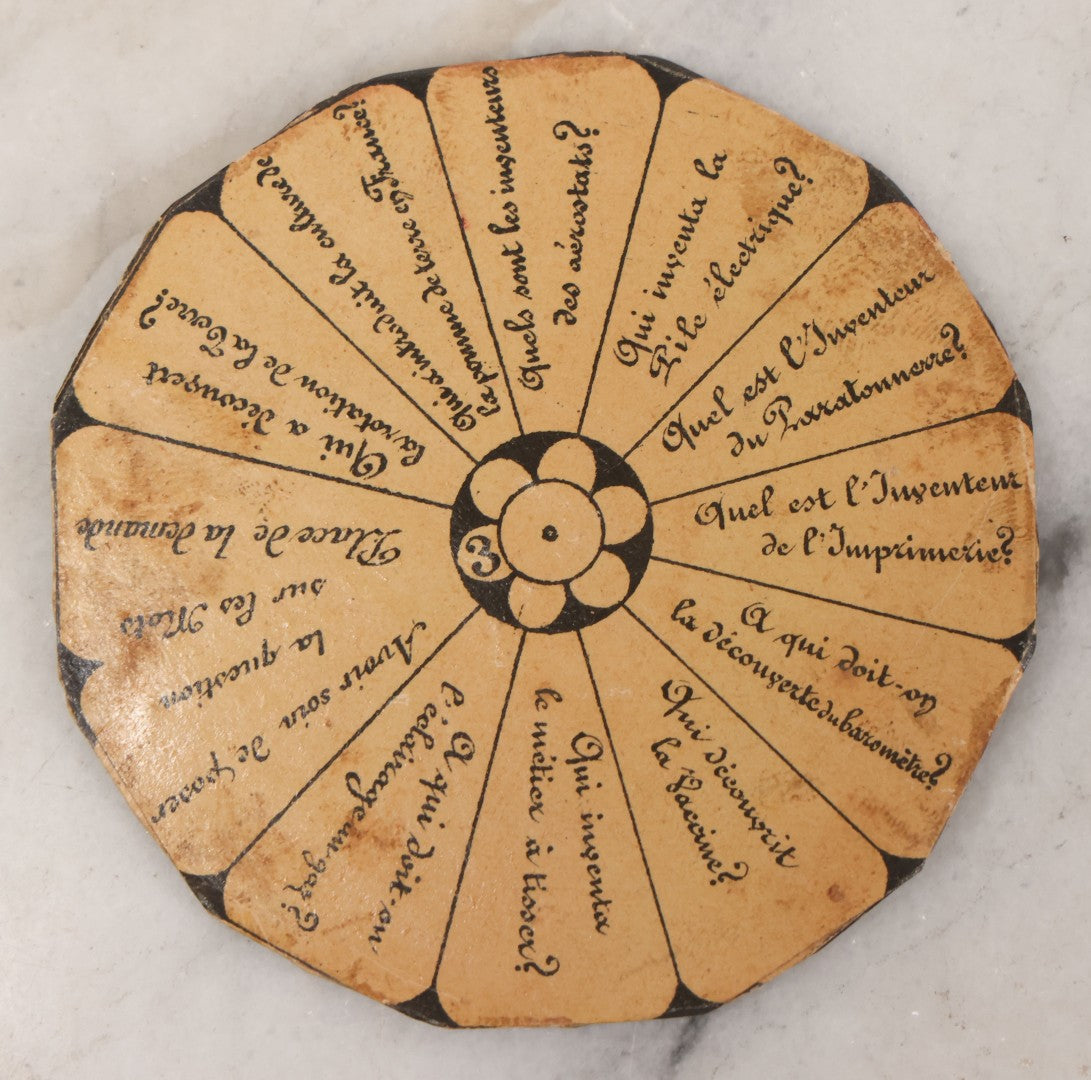 Quels sont les inventeurs
des aérostats?
Qui inventa la
Pile électrique?
Quel est l'Inventeur
du Paratonnerre?
Quel est l'Inventeur
de l'Imprimerie?
A qui doit-on
la découverte du baromètre?
Qui découvrit
la Vaccine?
Qui inventa
le métier à tisser?
A qui doit-on
l'eclairage au gaz?
Place de la demande
Avoir soin de poser
la question
sur les Mots
Qui a découvert
la rotation de la Terre?
Qui a introduit la culture de
la pomme de terre en France?
E